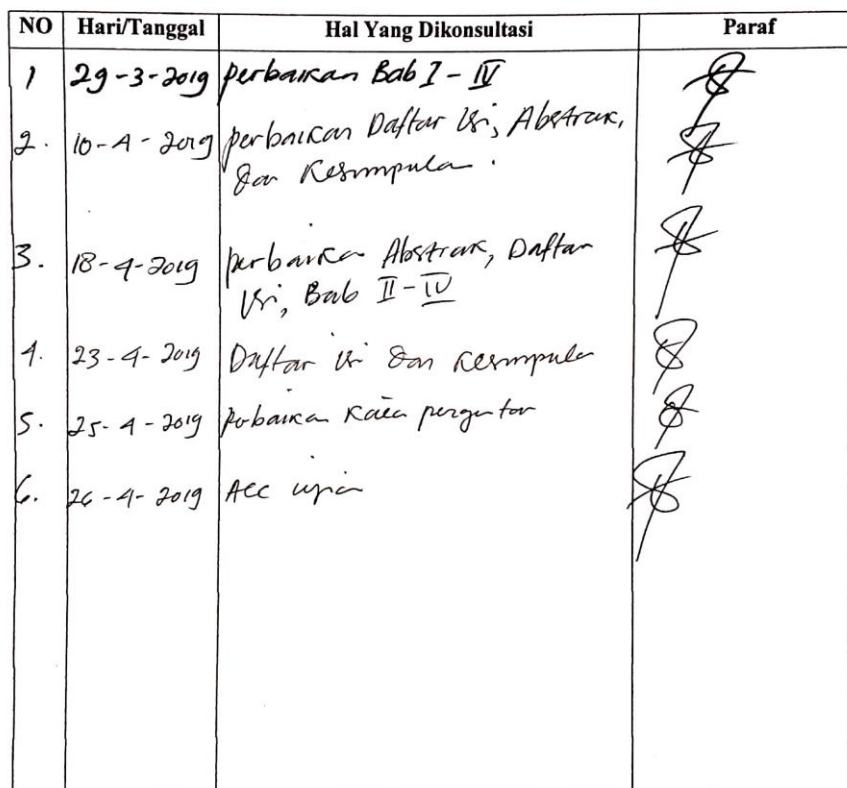 NO Hari/Tanggal Hal Yang Dikonsultasi Paraf
1 29-3-2019 perbaikan Bab I - IV
2. 10-4-2019 perbaikan Daftar Isi, Abstrak,
dan Kesimpulan.
3. 18-4-2019 perbaikan Abstrak, Daftar
Isi, Bab II - IV
4. 23-4-2019 Daftar isi dan kesimpulan
5. 25-4-2019 perbaikan Kata pengantar
6. 26-4-2019 Acc ujian